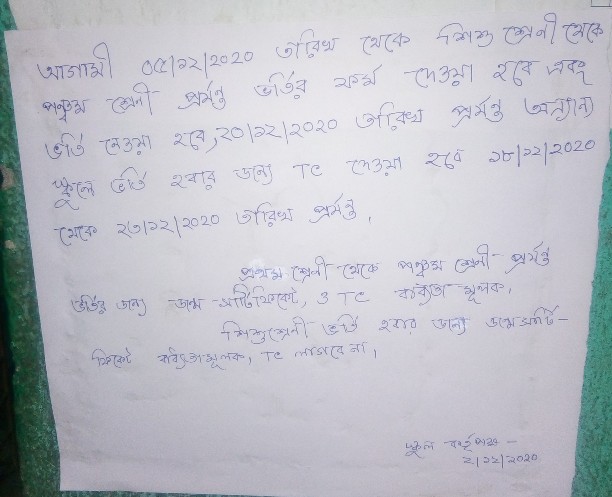 আগামী ০৫/১২/২০২০ তারিখ থেকে শিশু শ্রেনী থেকে
পঞ্চম শ্রেনী পর্যন্ত ভর্তির ফর্ম দেওয়া হবে এবং
ভর্তি নেওয়া হবে, ২০/১২/২০২০ তারিখ পর্যন্ত অন্যান্য
স্কুলে ভর্তি হবার জন্য TC দেওয়া হবে ১৮/১২/২০২০
থেকে ২৩/১২/২০২০ তারিখ পর্যন্ত,
প্রথম শ্রেনী থেকে পঞ্চম শ্রেনী পর্যন্ত
ভর্তির জন্য জন্ম সার্টিফিকেট, ও TC বাধ্যতা মূলক,
শিশুশ্রেনী ভর্তি হবার জন্য জন্মসার্টি-
ফিকেট বাধ্যতামূলক, TC লাগবে না,
স্কুল কর্তৃপক্ষ -
২/১২/২০২০